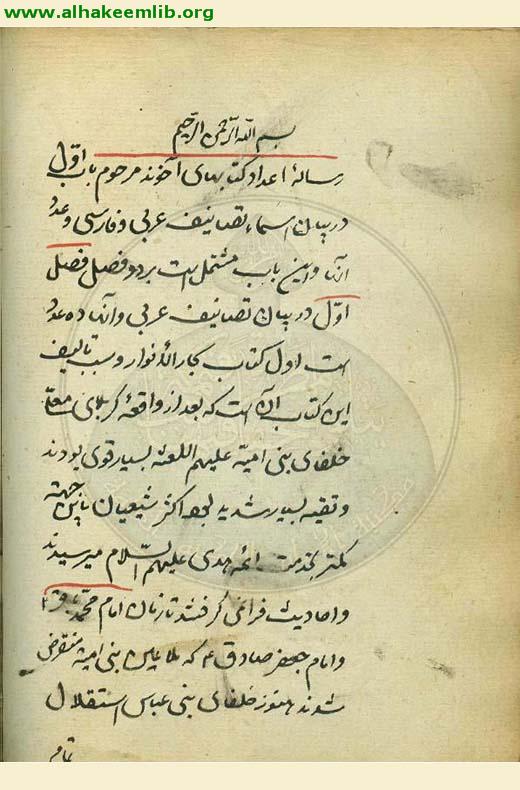 www.alhakeemlib.org
بسم الله الرحمن الرحیم
رسالهٔ اعداد کتابهای آخوند مرحوم باب اوّل
در بیان اسماء تصانیف عربی و فارسی و عدد
آنها و این باب مشتمل است بر دو فصل فصل
اوّل در بیان تصانیف عربی و آنها ده عدد
است اول کتاب بحار الأنوار و سبب تالیف
این کتاب آن است که بعد از واقعهٔ کربلای معلّا
خلفای بنی امیّه علیهم اللعنه بسیار قوی بودند
و تقیه بسیار شدید بود اکثر شیعیان باین جهة
کمتر بخدمت ائمه هدی علیهم السّلام میرسیدند
و احادیث فرا نمی گرفتند تا زمان امام محمّد باقر ع
و امام جعفر صادق ع که بنی امیّه منقرض
شوند هنوز خلفای بنی عباس استقلال
تمامی